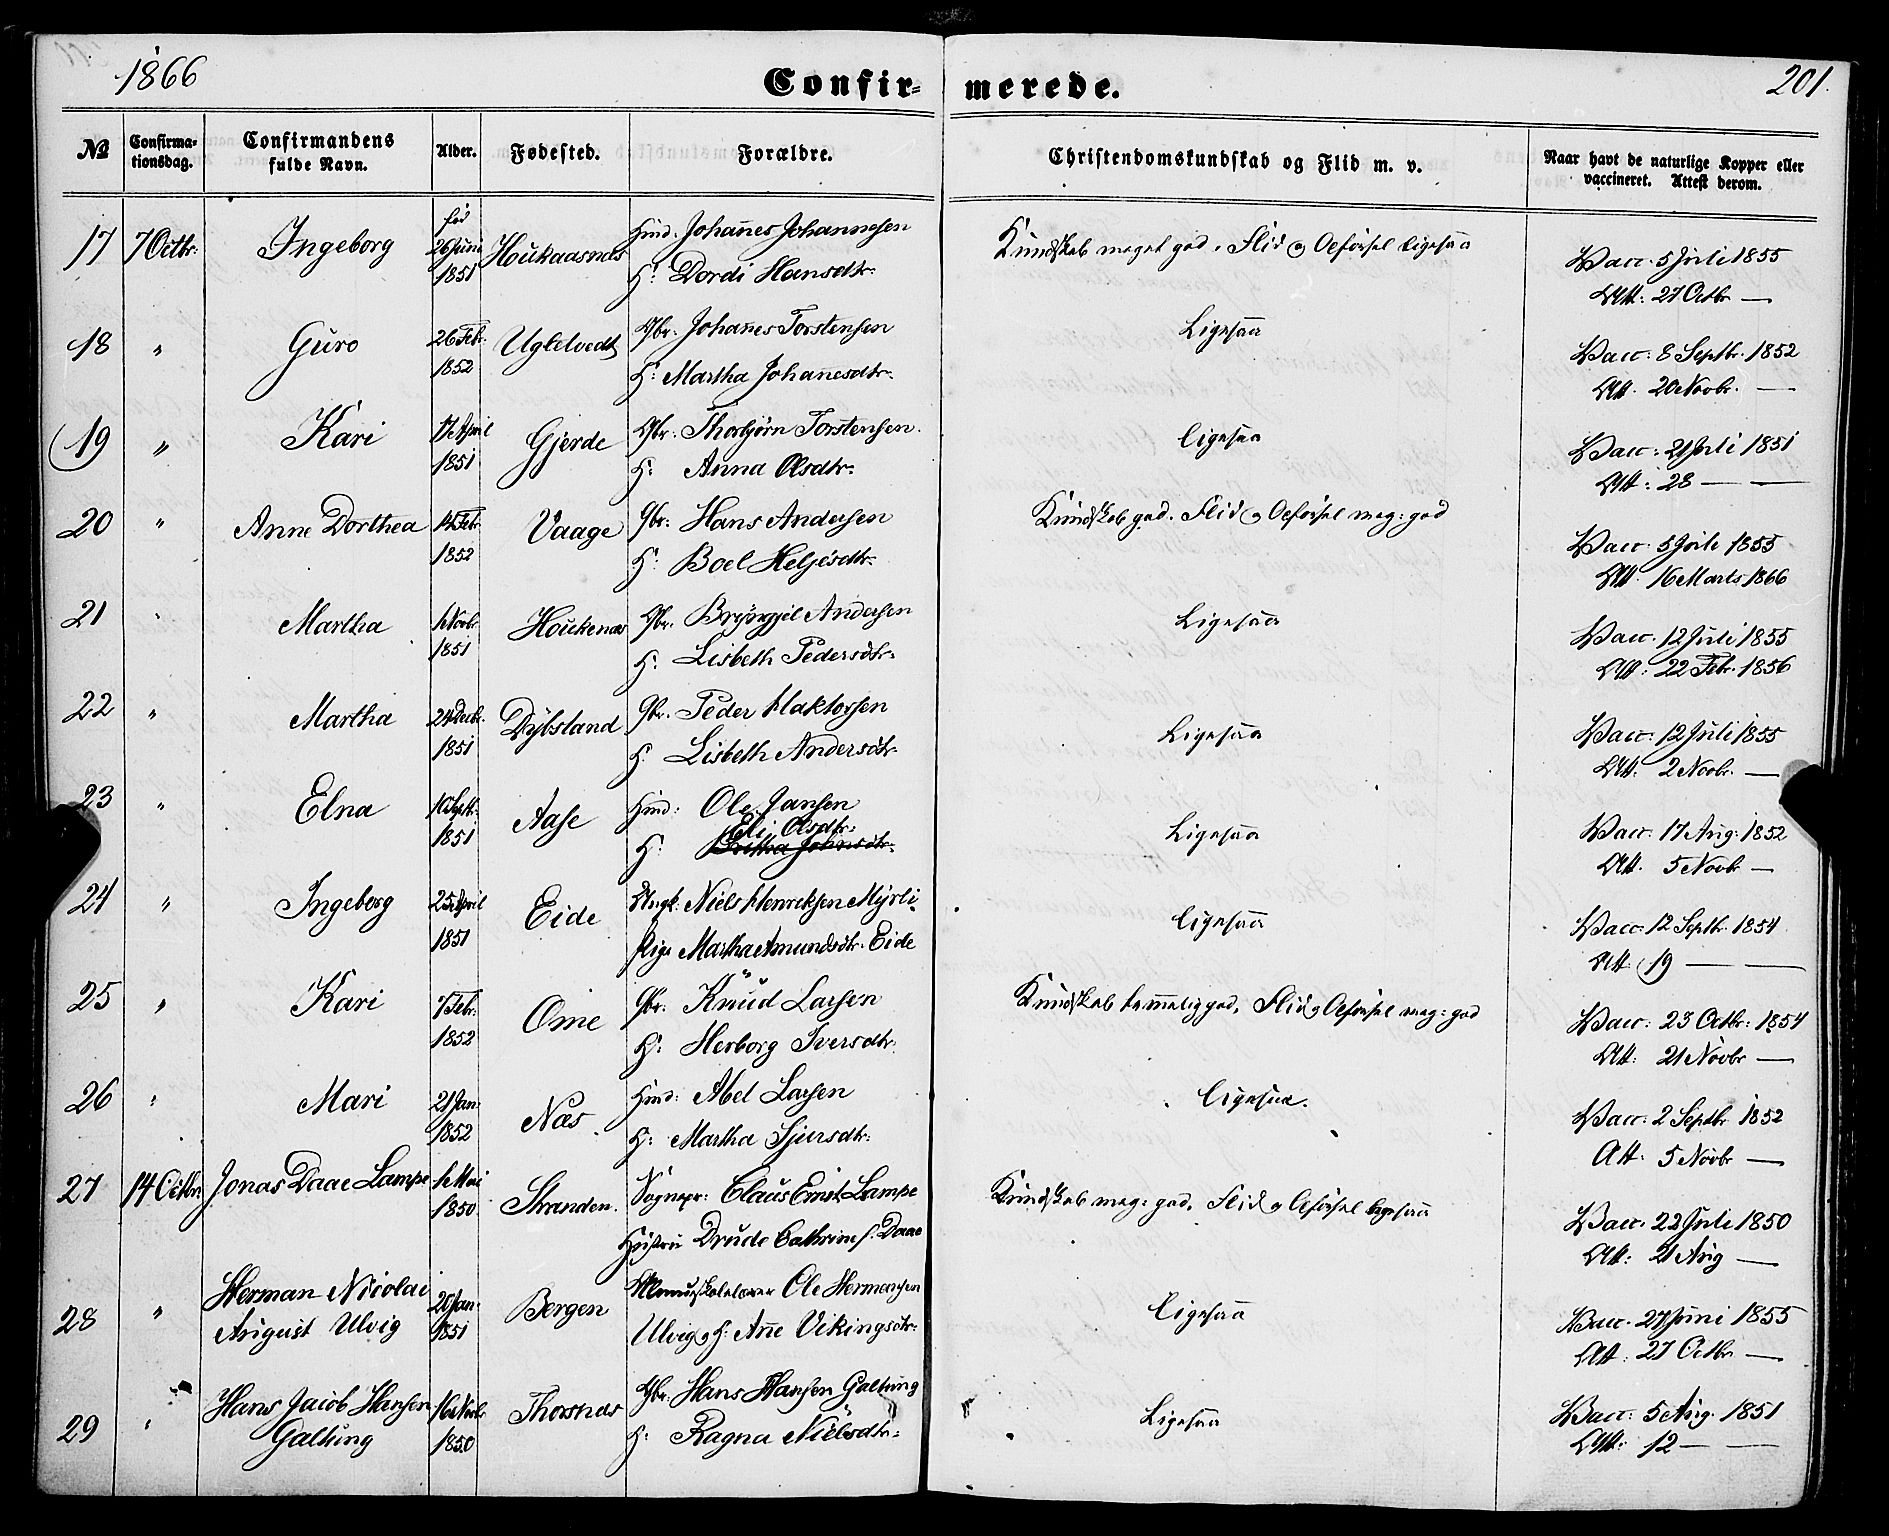 1866 Confirmerede. 201.
№ Confirmationsdag. Confirmandens fulde Navn. Alder. Fødested. Forældre. Christendomskundskab og Flid m. v. Naar havt de naturlige Kopper eller vaccineret. Attest derom.
17 7 Octbr: Ingeborg fød 26 Juni 1851 Houkaasnæs Huusm. Johan̄es Johannesen Kundskab meget god. Flid og Opførsel ligesaa Vacc. 5 Juli 1855
H: Dordi Hansdtr: Att: 27 Octbr —
18 " Guro 26 Febr. 1852 Uglelvedt Gbr. Johan̄es Torstensen Ligesaa Vacc: 8 Septbr. 1852
H: Martha Johan̄esdtr. Att. 20 Novbr. —
19 " Kari 17 April 1851 Gjerde Gbr: Thorbjørn Torstensen. ligesaa Vacc: 21 Juli 1851
H: Anna Olsdtr: Att: 28 — —
20 " Anne Dorthea 14 Febr 1852 Vaage Gbr: Hans Andersen Kundskab god. Flid og Opførsel meg: god Vacc. 5 Juli 1855
H: Boel Heljesdtr. Att. 16 Marts 1866
21 " Martha 1 Novbr 1851 Houkenæs Gbr. Brynjel Andersen Ligesaa Vacc. 12 Juli 1855
H: Lisbeth Pedersdtr: Att: 22 Febr. 1856
22 " Martha 24 Decbr. 1851 Dybsland Gbr. Peder Haktorsen Ligesaa Vacc: 12 Juli 1855
H: Lisbeth Andersdtr Att: 2 Novbr. —
23 " Elna 10 Septbr. 1851 Aase Huusm: Ole Jansen Ligesaa Vacc: 17 Aug: 1852
H: Eli Olsdtr: Att. 5 Novbr —
24 " Ingeborg 25 April 1851 Eide Ungk: Niels Henreksen Myrli ligesaa Vacc: 12 Septbr. 1854
Pige Martha Amundsdtr. Eide Att 19 — —
25 " Kari 7 Febr: 1852 Ome Gbr. Knud Larsen Kundskab temmelig god. Flid og Opførsel meg: god Vacc: 23 Octbr: 1854
H: Herborg Iversdtr. Att: 21 Novbr —
26 " Mari 21 Jan: 1852 Næs. Huusm: Abel Larsen ligesaa. Vacc: 2 Septbr 1852
H: Martha Sjursdtr: Att: 5 Novbr —
27 14 Octbr Jonas Daae Lampe 1 Mai 1850 Stranden. Sognepr: Claus Ernst Lampe Kundskab meg: god. Flid og Opførsel ligesaa Vacc. 22 Juli 1850
Hustru Drude Cathrine f. Daae Att: 21 Aug —
28 " Herman Nicolai August Ulvig 20 Jan: 1851 Bergen Almueskolelærer Ole Hermansen Ligesaa Vacc. 27 Juni 1855
Ulvig og H: An̄e Vikingsdtr: Att: 27 Octbr —
29 " Hans Jacob Hansen Galtung 16 Novbr 1850 Thorsnæs Gbr. Hans Hansen Galtung Ligesaa Vacc: 5 Aug. 1851
H: Ragna Nielsdtr: Att: 12 — —